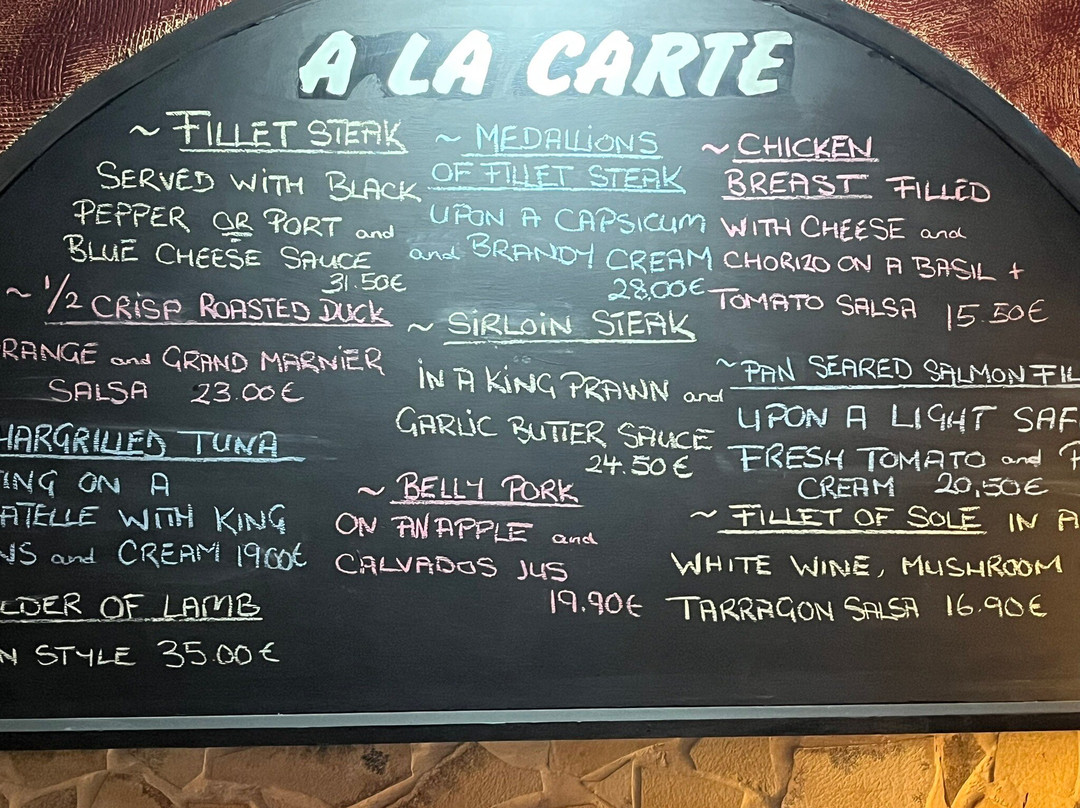 A LA CARTE
~ FILLET STEAK
SERVED WITH BLACK
PEPPER OR PORT and
BLUE CHEESE SAUCE
31.50€
~ 1/2 CRISP ROASTED DUCK
RANGE and GRAND MARNIER
SALSA 23.00€
HARGRILLED TUNA
ING ON A
ATELLE WITH KING
NS and CREAM 19.00€
LDER OF LAMB
N STYLE 35.00€
~ MEDALLIONS
OF FILLET STEAK
UPON A CAPSICUM
and BRANDY CREAM
28.00€
~ SIRLOIN STEAK
IN A KING PRAWN and
GARLIC BUTTER SAUCE
24.50€
~ BELLY PORK
ON AN APPLE and
CALVADOS JUS
19.90€
~ CHICKEN
BREAST FILLED
WITH CHEESE and
CHORIZO ON A BASIL +
TOMATO SALSA 15.50€
~ PAN SEARED SALMON FIL
UPON A LIGHT SAF
FRESH TOMATO and P
CREAM 20,50€
~ FILLET OF SOLE IN A
WHITE WINE, MUSHROOM
TARRAGON SALSA 16.90€